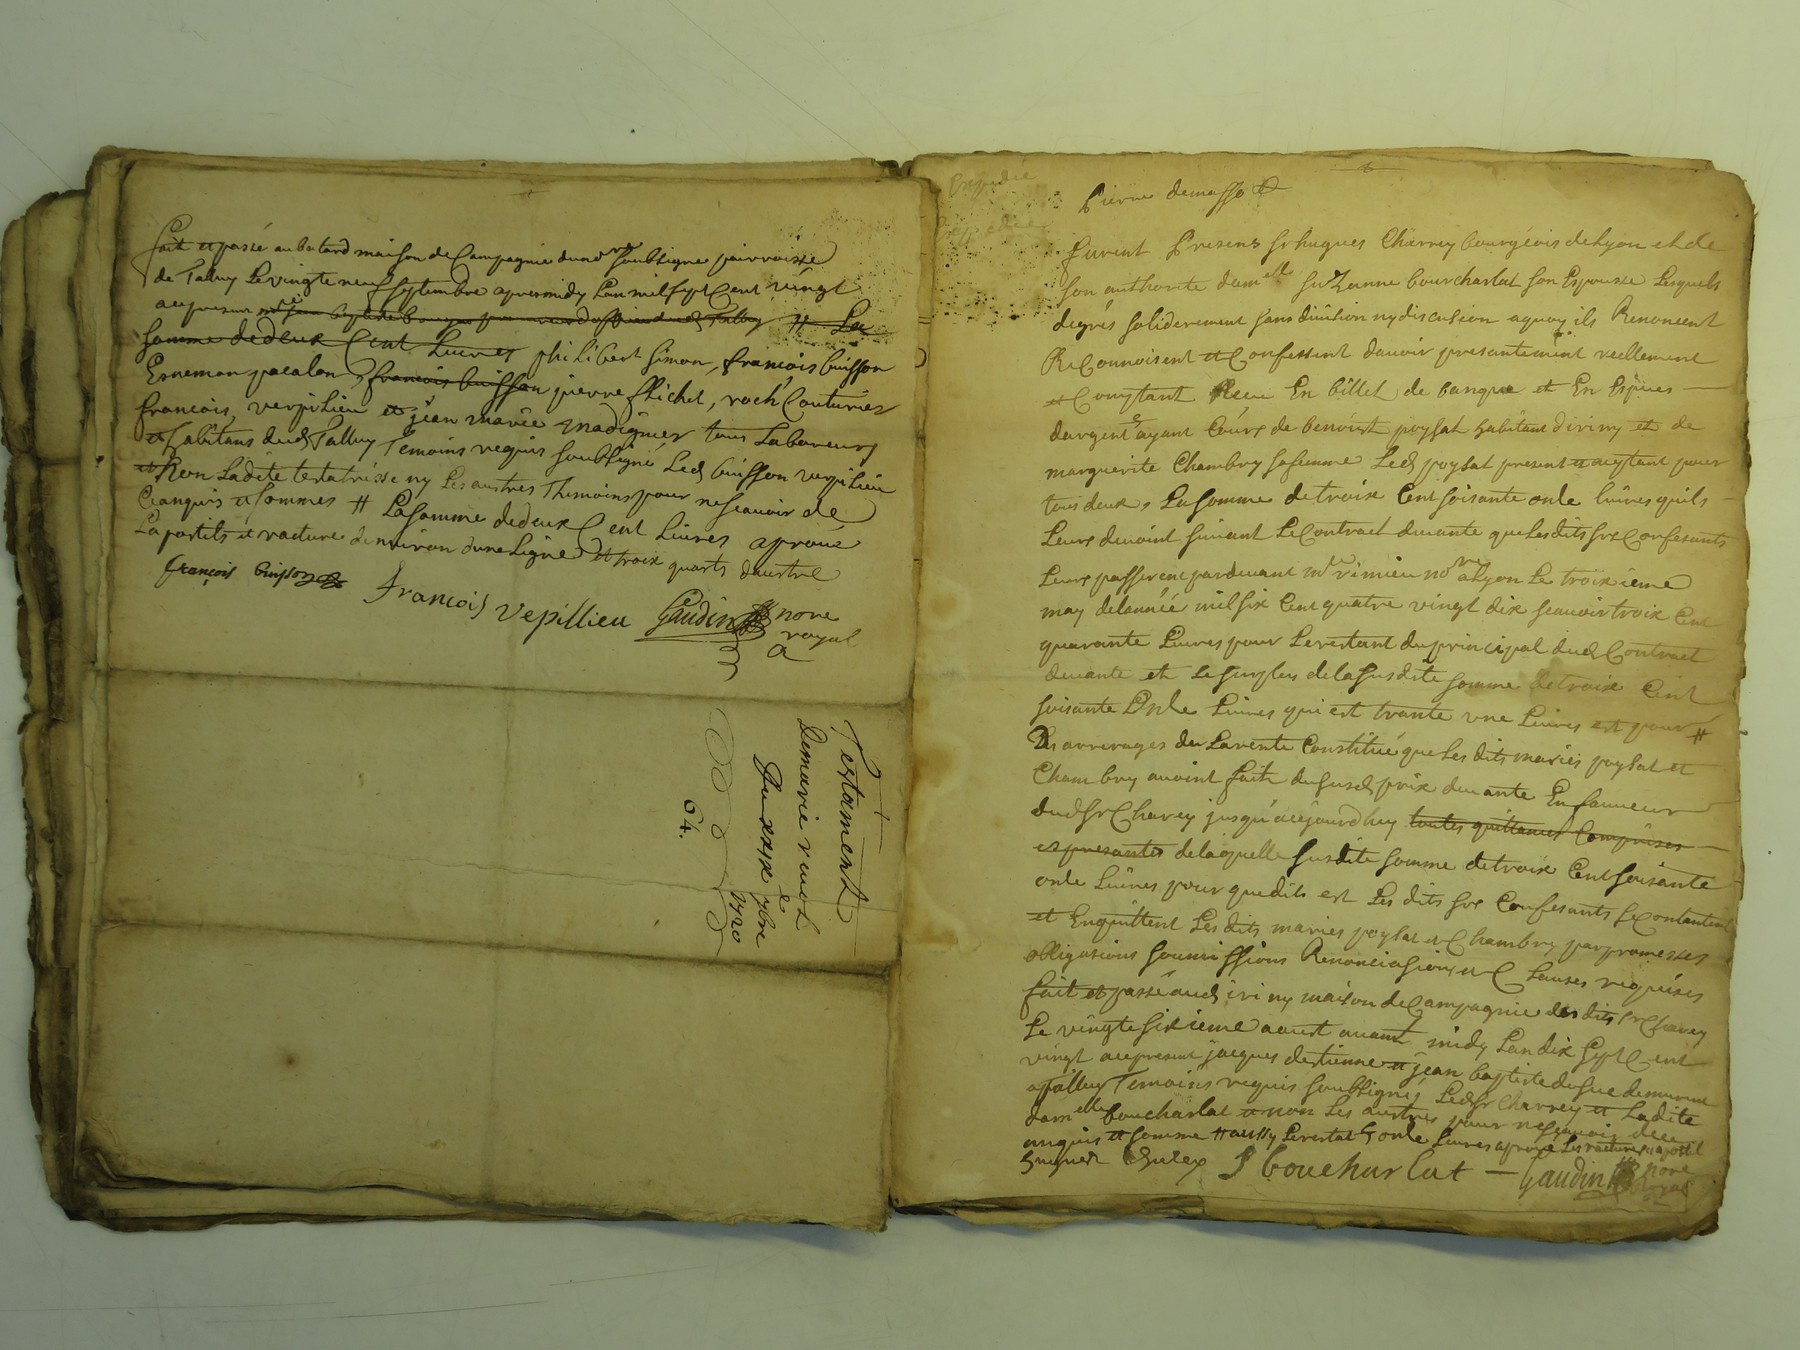 fait et passé au batard maison de Campagnie du nore soubsigne parroisse
de Talluy Le vingte neuf septembre apres midy Lan mil sept Cent vingt
acepresant # La
somme de deux Cent Livres philibert simon, francois buisson
Esneman pacalon, francois buisson pierre flichet, roch Couturier
francois, verpilieu et jean marie madignier tous Laboureurs
et habitans dud Talluy Temoins requis soubsigné Led buisson verpilieu
et Non Ladite testatrisse ny Les austres Themoins pour ne scauoir de
Ce anquis et sommes # La somme de deux Cent Liures aprouué
La postils et racture denuiron dune Ligne et trois quarts daustre
françois buisson
francois vepillieu Gaudin nore
royal
Testament
de marie rivol
du xxix e 7bre
1720
64.
Expediée
Pierre demasso
furent Presens sr hugues Charrey bourgeois de Lyon et de
son authorite dam elle suzanne bourcharlat son Espouse Lesquels
degrés soliderement sans diuision ny discusion aquoy ils Renoncent
Reconnoisent et Confessent dauoir presantement reellement
et Comptant Receu En billet de banque et En Espices
dargent ayant Cours de benoist poysat habitant diriny et de
marguerite Chambry sa femme Led poysat present et aceptant pour
tous deux, La somme de troix Cent soisante onle liures quils
Leurs deuoint suiuant Le Contract deuante que Lesdits srs Confesants
Leurs passerent par deuant me rimieu nore a Lyon Le troixieme
may de lannée mil six Cent quatre vingt dix scauoir troix Cent
quarante Liures pour Le restant du principal dud Contract
deuante et Le surplus de la susdite somme de troix Cent
soisante Onle Liures qui est trante vne Liures est pour #
Les arrerages de La rente Constitué que Les dits mariés poysat et
Chambry auoint fait du susd prix deuante En faueur
dud sr Charey jusqu'aujourdhuy toutes quittances Comprises
es presantes de laquelle susdite somme de troix Cent soisante
onle Liures pour que dits est Les dits srs Confesants se Contantent
et En quittent Les dits maries poysat et Chambry par promesses
obligasions soumissions Renonciasions et Clauses requises
fait et passé aud iriny maison de Campagnie des dits sr Charey
Le vingte sixieme aoust auant midy Lan dix sept Cent
vingt acepresent jacques destienne et jean baptiste dufue demurant
a Talluy Temoins requis soubsignés Led sr Charrey et Ladite
dam elle boucharlat et non Les austres pour ne scauoir dece
anquis et somme # aussy Le restat onle Liures aprouué Les ractures apostil
S boucharlat Gaudin nore
royal